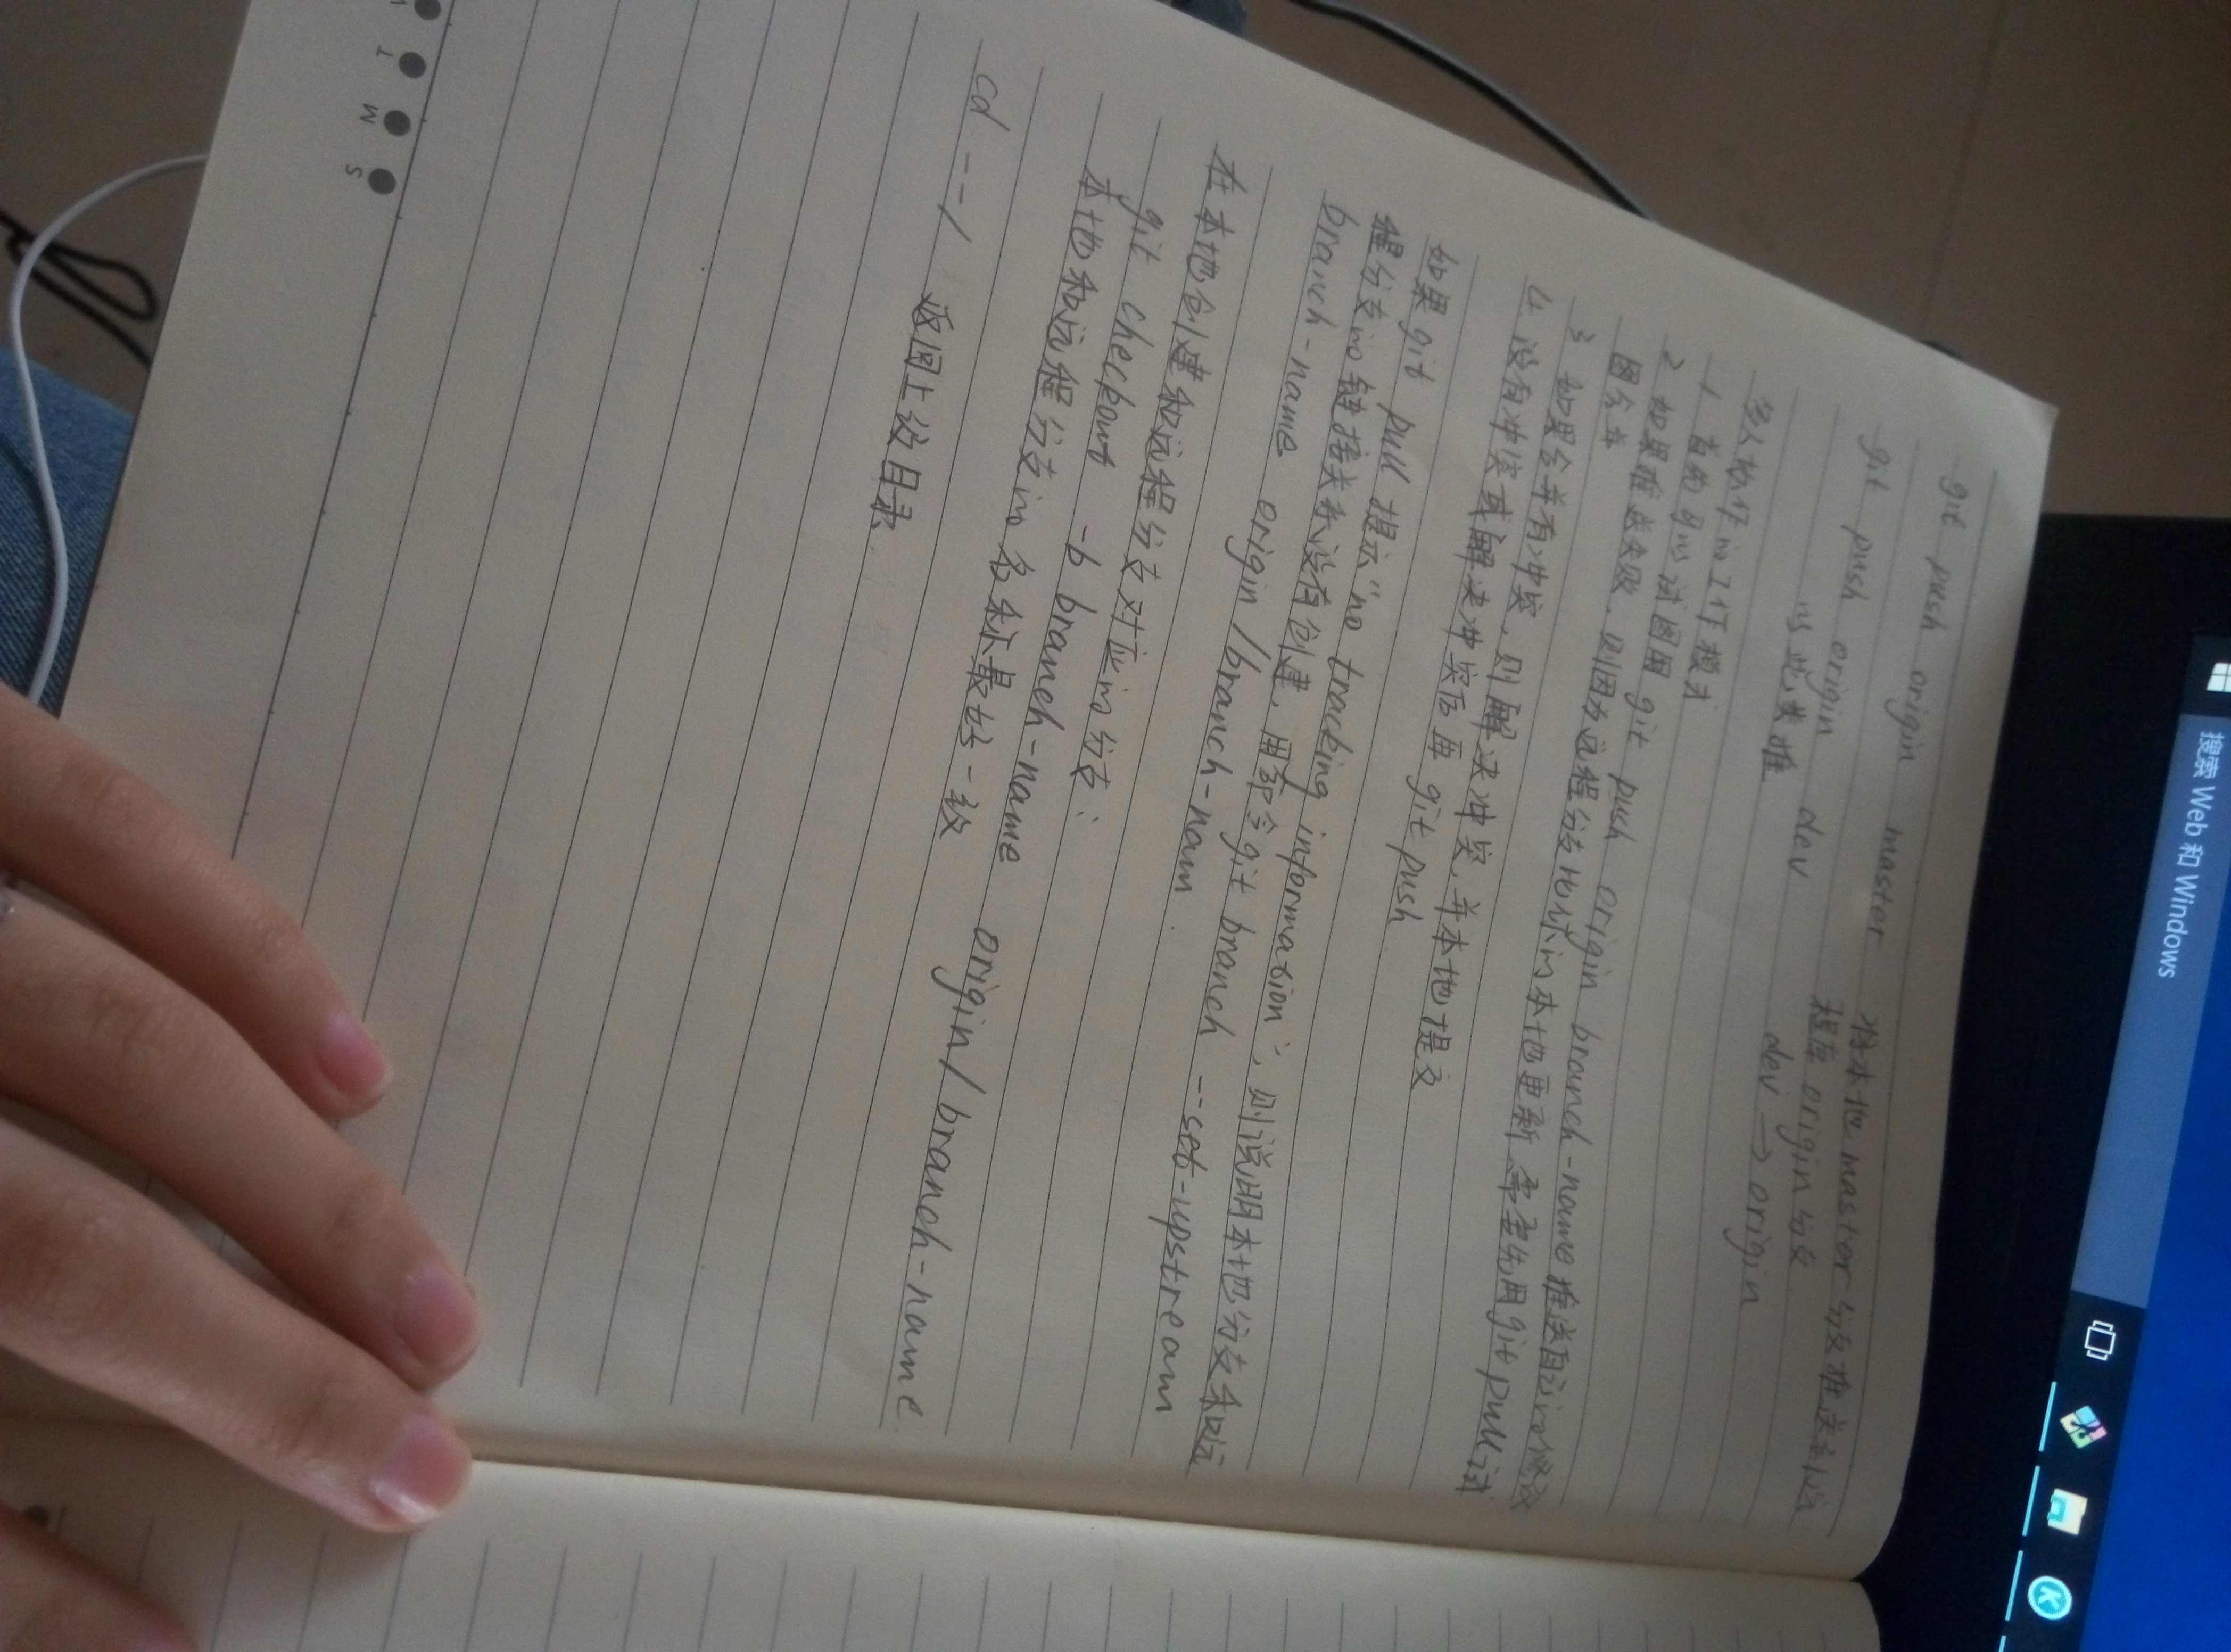 git push origin master 将本地master分支推送到远
程库origin分支
git push origin dev dev → origin
以此类推
多人协作的工作模式
1 首先可以试图用 git push origin branch-name 推送自己的修改
2 如果推送失败，则因为远程分支比你的本地更新 需要先用git pull试
图合并
3 如果合并有冲突，则解决冲突，并本地提交
4. 没有冲突或解决冲突后再 git push
如果git pull 提示“no tracking information”，则说明本地分支和远
程分支的链接关系没有创建，用命令git branch --set-upstream
branch-name origin/branch-nam
在本地创建和远程分支对应的分支：
git checkout -b branch-name origin/branch-name.
本地和远程分支的名称最好一致
cd ---/ 返回上级目录
T
W
S
搜索 Web 和 Windows